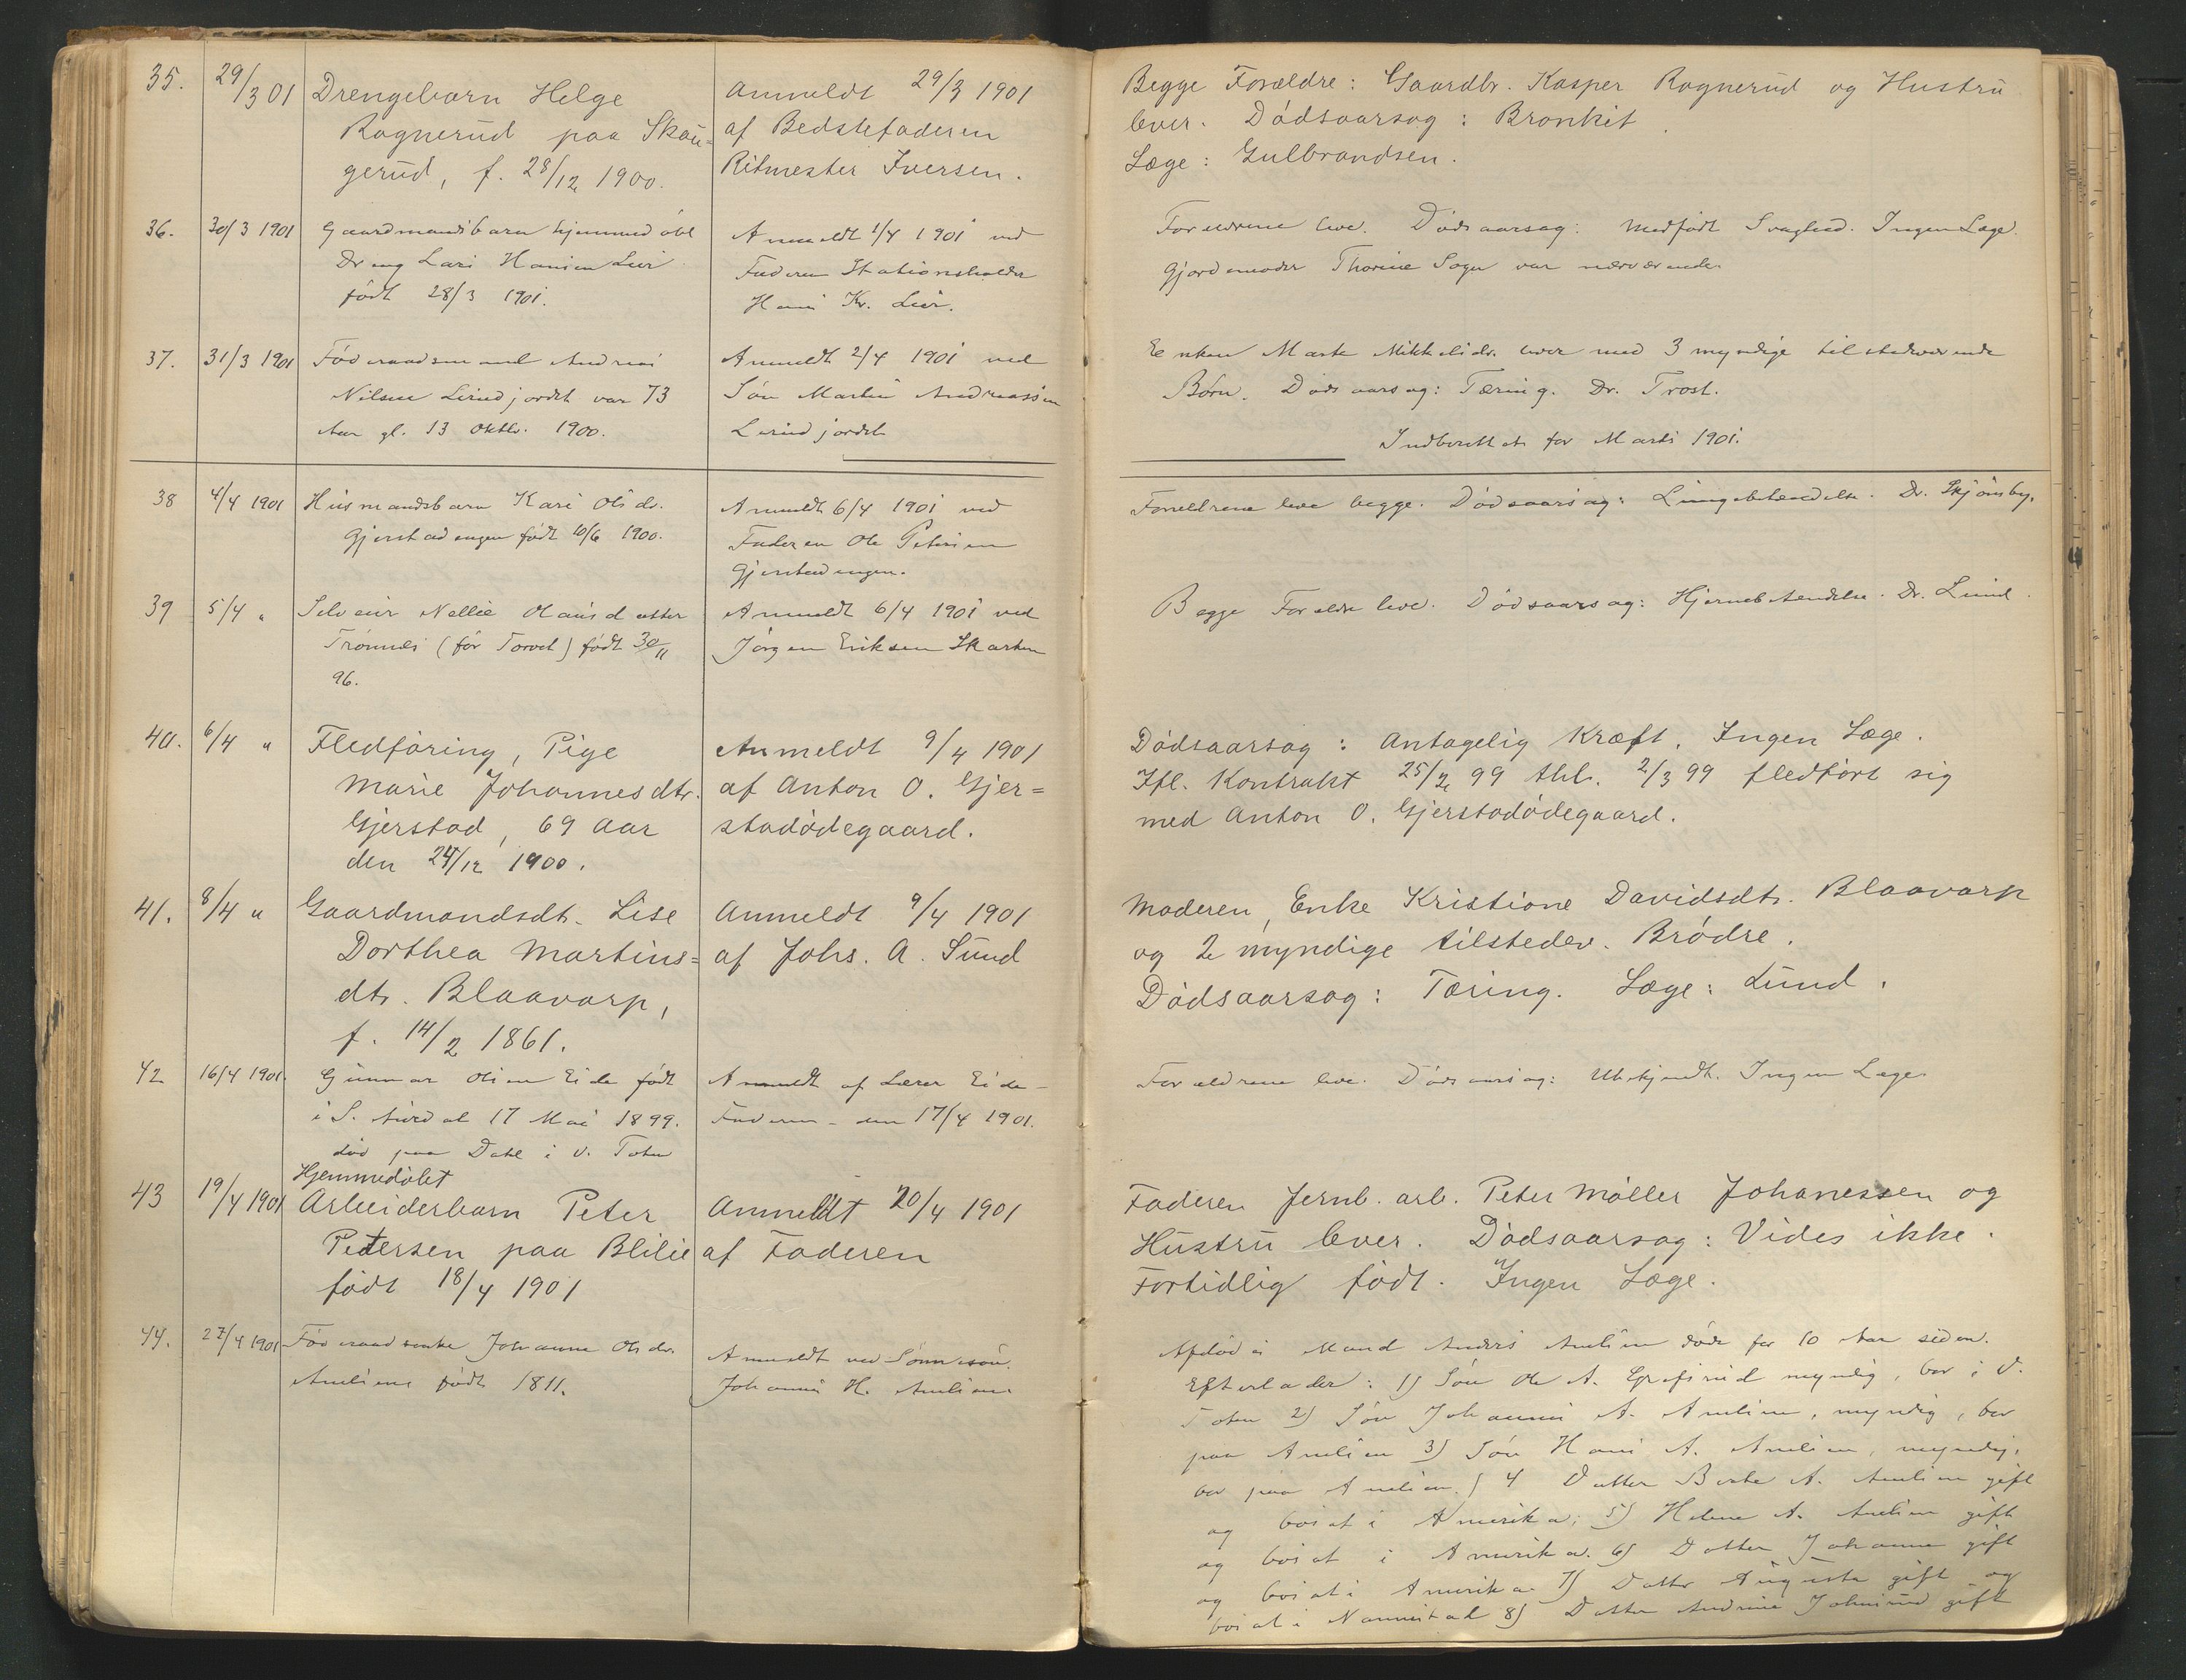 35. 29/3 01 Drengebarn Helge
Rognerud paa Skau-
gerud, f. 28/12 1900.
Anmeldt 29/3 1901
af Bedstefaderen
Ritmester Iversen.
Begge Forældre: Gaardbr. Kasper Rognerud og Hustru
lever. Dødsaarsag: Bronkit.
Læge: Gulbrandsen.
36. 30/3 1901 Gaardmandsbarn hjemmedøbt
Dreng Lars Hansen Lier
født 28/3 1901.
Anmeldt 1/4 1901 ved
Faderen Stationsholder
Hans Kr. Lier.
Forældrene leve. Dødsaarsag: Medfødt Svaghed. Ingen Læge.
Gjordemoder Thorine Sogn var nærværende
37. 31/3 1901 Føderaadsmand Andreas
Nilsen Lundjordet var 73
Aar gl. 13 Oktbr. 1900.
Anmeldt 2/4 1901 ved
Søn Martin Andreassen
Lundjordet
Enken Marte Mikkelsdr. lever med 3 myndige tilstedeværende
Børn. Dødsaarsag: Tæring. Dr. Trost.
Indberettet for Marts 1901.
38 4/4 1901 Husmandsbarn Kari Olsdr.
Gjerstadengen født 10/6 1900.
Anmeldt 6/4 1901 ved
Faderen Ole Petersen
Gjerstadengen.
Forældrene leve begge. Dødsaarsag: Lungebetændelse. Dr. Skjønsby.
39 5/4 " Nellie Olausdatter
Trønnes (før Torvet) født 30/11
96.
Anmeldt 6/4 1901 ved
Jørgen Eriksen Skarten
Begge Forældre leve. Dødsaarsag: Hjernebetændelse. Dr. Lund.
40. 6/4 " Fledføring, Pige
Marie Johannesdtr.
Gjerstad, 69 Aar
den 24/12 1900.
Anmeldt 9/4 1901
af Anton O. Gjer=
stadødegaard.
Dødsaarsag: Antagelig Kræft. Ingen Læge.
Ifl. Kontrakt 25/2 99 thl. 2/3 99 fledført sig
med Anton O. Gjerstadødegaard.
41. 8/4 " Gaardmandsdt. Lise
Dorthea Martins=
dtr. Blaavarp,
f. 14/2 1861.
Anmeldt 9/4 1901
af Johs. A. Sund
Moderen, Enke Kristiane Davidsdtr. Blaavarp
og 2 myndige tilstedev. Brødre.
Dødsaarsag: Tæring. Læge: Lund.
42 16/4 1901. Gunnar Olsen Eide født
i S. Aurdal 17 Mai 1899.
død paa Dahl i V. Toten
Anmeldt af Lærer Eide -
Faderen - den 17/4 1901.
Forældrene leve. Dødsaarsag: Ubekjendt. Ingen Læge.
43 19/4 1901 Hjemmedøbt
Arbeiderbarn Peter
Petersen paa Blilie
født 18/4 1901
Anmeldt 20/4 1901
af Faderen
Faderen Jernb. arb. Peter Møller Johanessen og
Hustru lever. Dødsaarsag: Vides ikke.
Fortidlig født. Ingen Læge.
44. 27/4 1901 Føderaadsenke Johanne Olsdr.
Amlien født 1811.
Anmeldt ved Sønnesøn
Johannes H. Amlien
Afdødes Mand Anders Amlien døde for 10 Aar siden.
Efterlader: 1) Søn Ole A. myndig, bor i V.
Toten 2) Søn Johannes A. Amlien, myndig, bor
paa Amlien 3) Søn Hans A. Amlien, myndig,
bor paa Amlien. 4) Datter Berte A. Amlien gift
og bosat i Amerika; 5) Helene A. Amlien gift
og bosat i Amerika. 6) Datter Johanne gift
og bosat i Amerika 7) Datter Augusta gift og
bosat i Nannestad 8) Datter Andrine gift